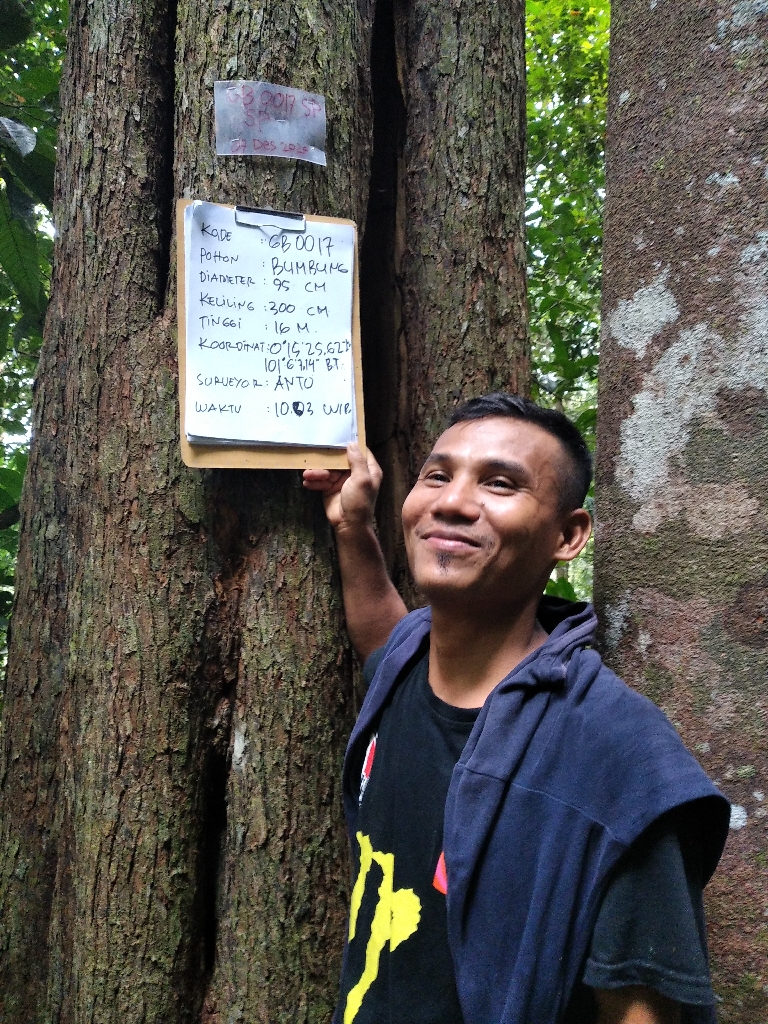 GB 0017 SP
SP
Des
KODE : GB 0017
POHON : BUMBUNG
DIAMETER : 95 CM
KELILING : 300 CM
TINGGI : 16 M.
KOORDINAT: 0°15'25,62"
101°6'7,14" BT.
SURVEYOR : ANTO
WAKTU : WIB